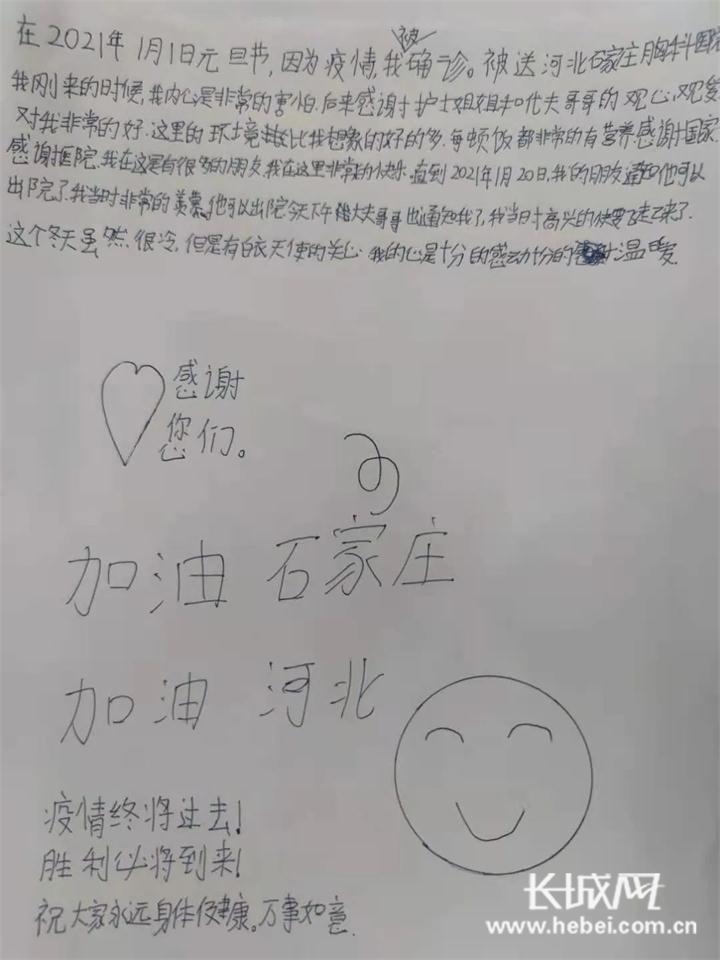 在2021年1月1日元旦节,因为疫情,我被确诊。被送河北石家庄胸科医院
我刚来的时候,我内心是非常的害怕.后来感谢护士姐姐和代夫哥哥的观心,观爱
对我非常的好.这里的环境比我想象的好的多.每顿饭都非常的有营养感谢国家.
感谢医院.我在这里有很多的朋友.我在这里非常的快乐.直到2021年1月20日,我的朋友通知他可以
出院了.我当时非常的羡慕.他可以出院今天下午大夫哥哥也通知我了,我当时高兴的快要飞起来了.
这个冬天虽然很冷.但是有白衣天使的关心.我的心是十分的感动十分的温暖.
感谢
您们。
加油 石家庄
加油 河北
疫情终将过去!
胜利必将到来!
祝大家永远身体健康。万事如意.
长城网
www.hebei.com.cn